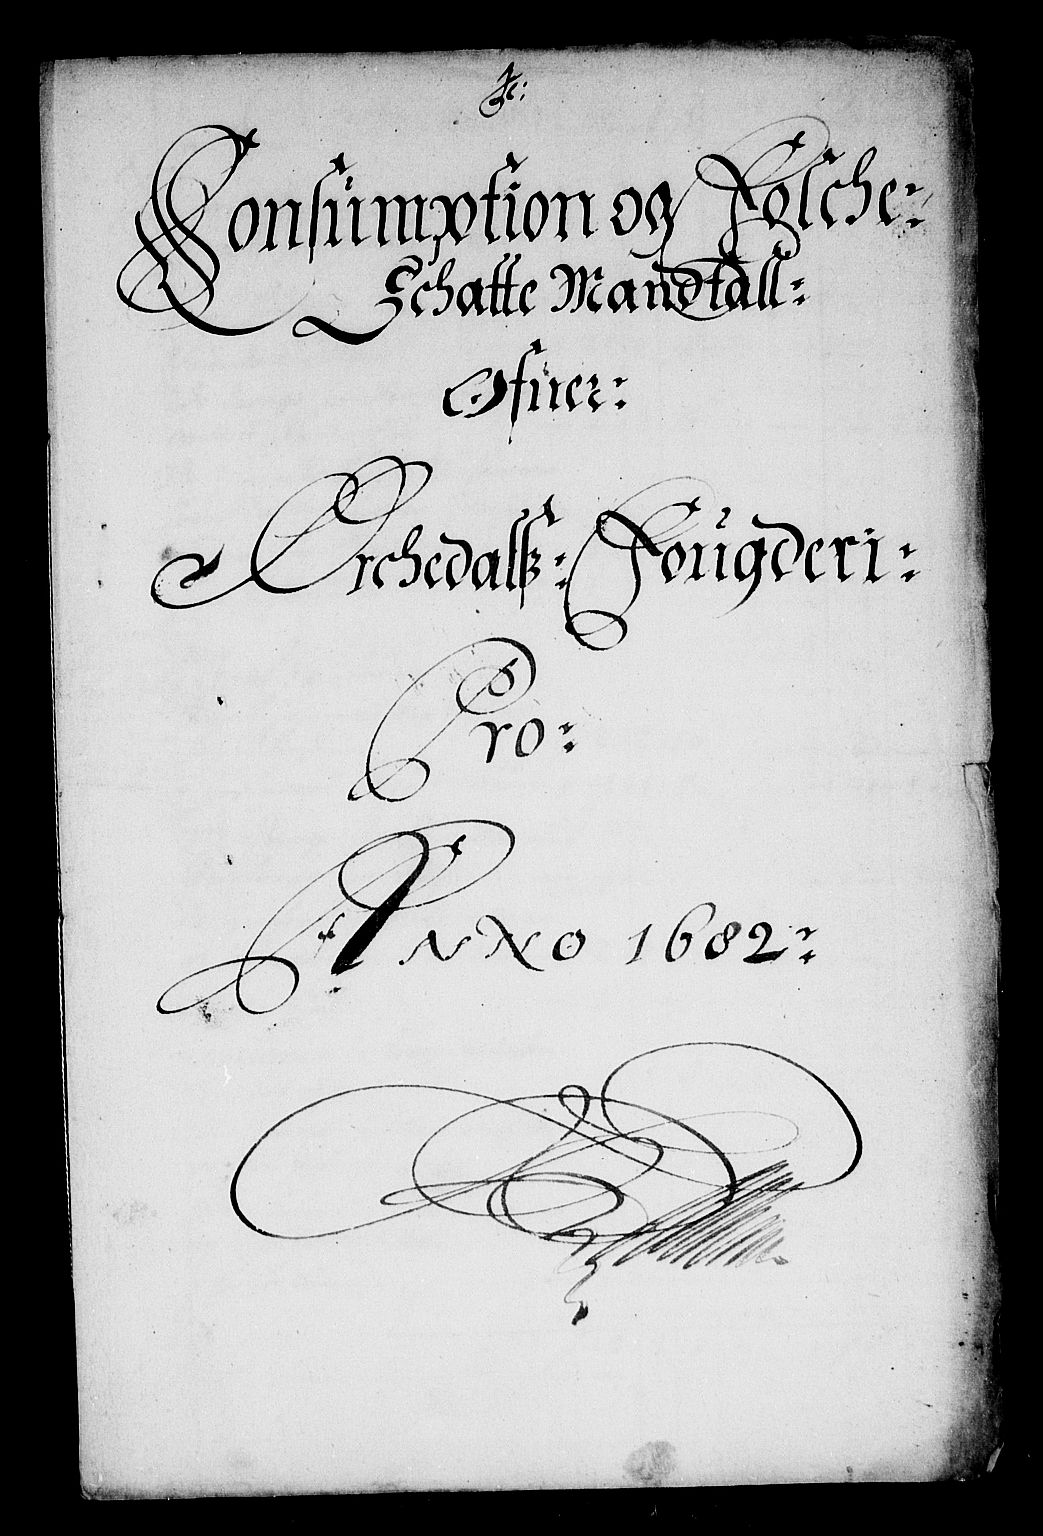 Consumption og Folche-
Schatte Mandtall:
Ofuer:
Orchedalß: Fougderi:
Pro:
ANNO 1682: